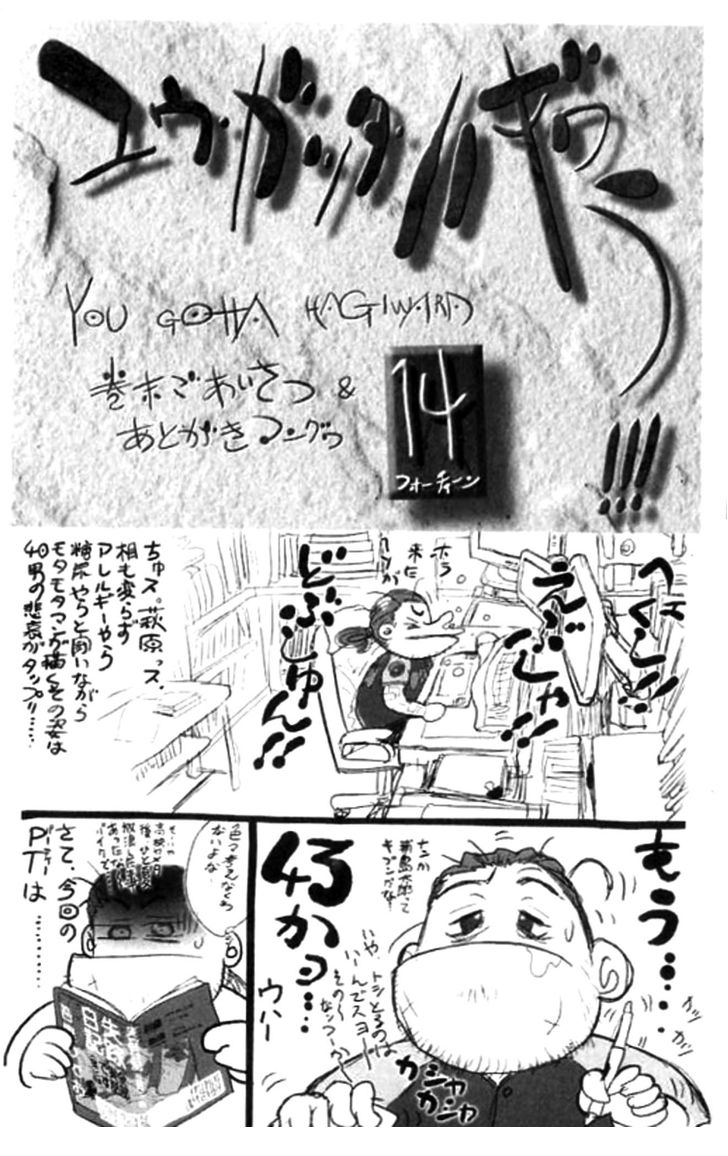 ユウ・ガッタ・ハギワラ!!!
YOU GOTTA HAGIWARA
巻末ごあいさつ &
あとがきマングワ
14
フォーティーン
ヘックシ!!
えぶじゃ!!
どぶしゅん!!
ホラ
来た
ちゅス。萩原っス。
相も変らず
アレルギーやら
糖尿やらと闘いながら
モタモタマンガ描くその姿は
40男の悲哀がタップリ……
もう…
43かョ…
ウハー
なんか
浦島太郎って
キブンかな?
いや、トシとるのは
いーんでスヨ
その〜
ガッ
ガッ
カシャ
カシャ
色々考えなくちゃ
ないよな…
失踪
日記
さて、今回の
PTは…………
パーティー